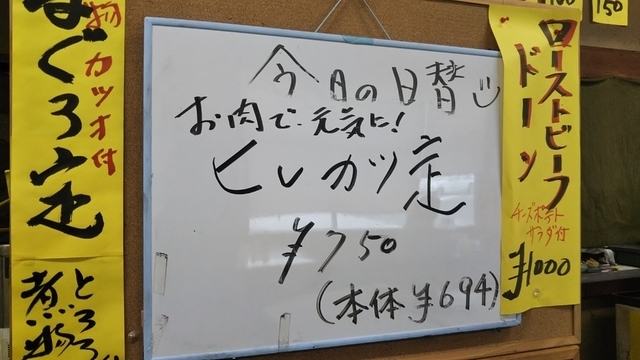 まぐろ定
物カツオ付
とろろ
煮物
今日の日替
お肉で元気に!
ヒレカツ定
¥750
(本体¥694)
ローストビーフ
ドーン
チーズポテト
サラダ付
¥1000
150